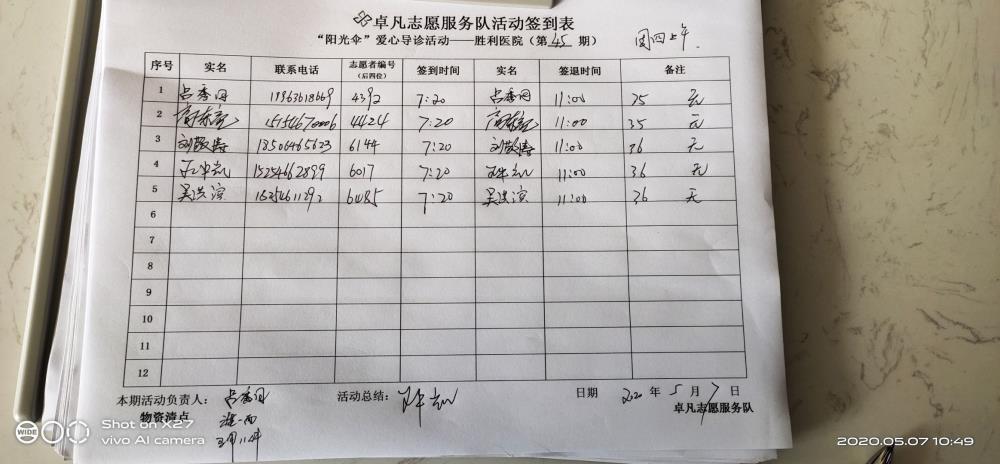 卓凡志愿服务队活动签到表
“阳光伞”爱心导诊活动——胜利医院（第 45 期） 周四上午
序号 实名 联系电话 志愿者编号（后四位） 签到时间 实名 签退时间 备注
1 吕秀同 4392 7:20 吕秀同 11:00 35 无
2 4424 7:20 11:00 35 无
3 刘敬涛 18506465623 6144 7:20 刘敬涛 11:00 36 无
4 15254662899 6017 7:20 11:00 36 无
5 吴洪滨 6485 7:20 吴洪滨 11:00 36 无
6
7
8
9
10
11
12
本期活动负责人： 吕秀同 活动总结： 日期 2020 年 5 月 7 日
物资清点 卓凡志愿服务队
WIDE Shot on X27
vivo AI camera
2020.05.07 10:49